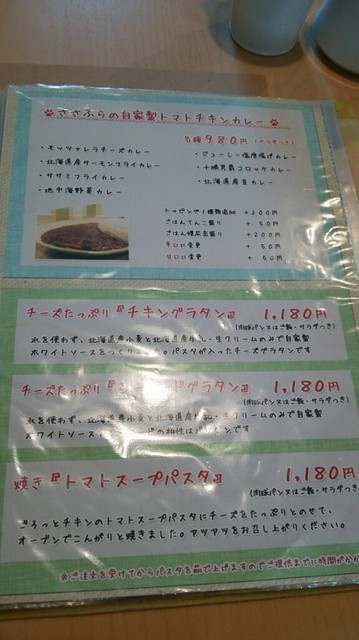 ささふらの自家製トマトチキンカレー
各種980円
・モッツァレラチーズカレー
・北海道産サーモンフライカレー
・ササミフライカレー
・地中海野菜カレー
・ジューシー塩唐揚げカレー
・十勝男爵コロッケカレー
・北海道産豆カレー
トッピング1種類追加 +200円
ごはん +50円
ごはん +200円
辛口に変更 +50円
甘口に変更 +50円
チーズたっぷり『チキングラタン』 1,180円
(肉球パン又はご飯・サラダつき)
水を使わず、北海道産小麦と北海道産牛乳・生クリームのみで自家製
ホワイトソースをつくりました。パスタが入ったチーズグラタンです
チーズたっぷり『シーフードグラタン』 1,180円
(肉球パン又はご飯・サラダつき)
水を使わず、北海道産小麦と北海道産牛乳・生クリームのみで自家製
ホワイトソース の相性は です
焼き『トマトスープパスタ』 1,180円
(肉球パン又はご飯・サラダつき
ごろっとチキンのトマトスープパスタにチーズをたっぷりとのせて、
オーブンでこんがりと焼きました。アツアツをお召し上がりください。
※ご注文を受けてからパスタを茹で上げますのでご提供までに時間がかか